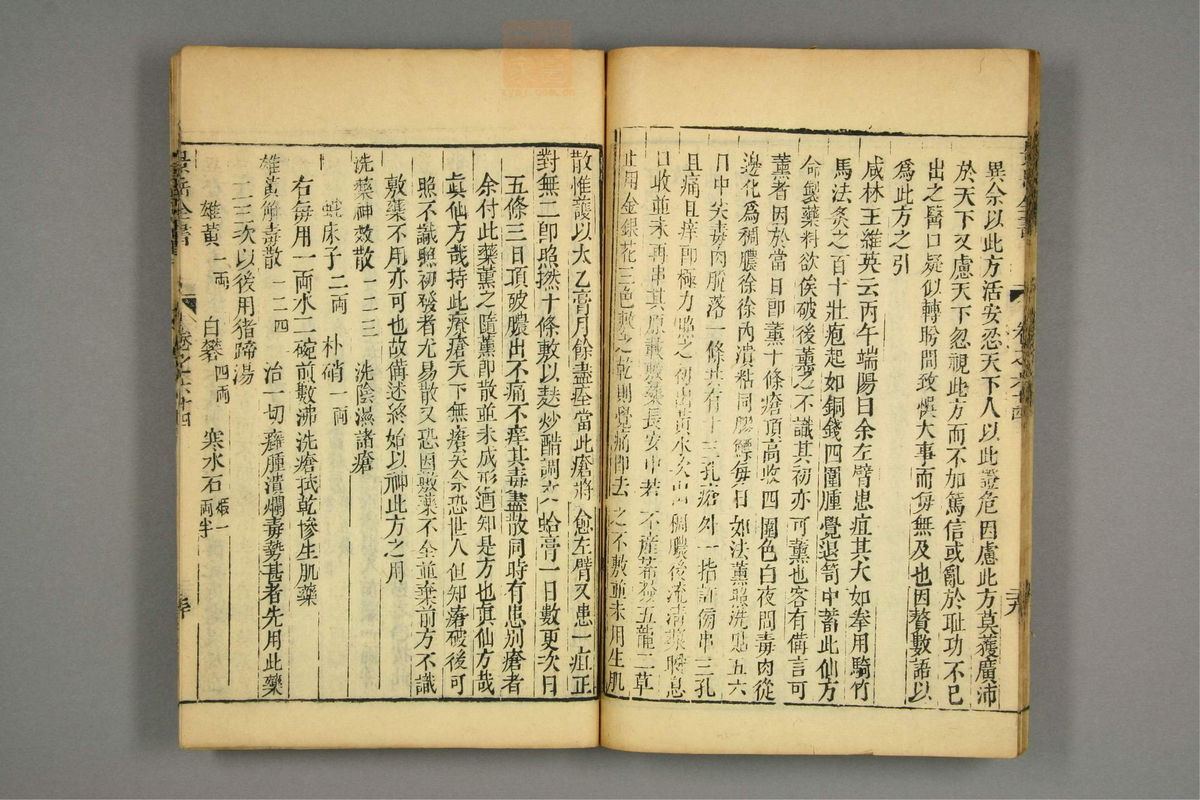 異余以此方活安忍天下人以此證危因慮此方莫獲廣沛
於天下又慮天下忽視此方而不加篤信或亂於耻功不已
出之醫口疑似轉盼間致悞大事而每無及也因贅數語以
爲此方之引
咸林王維英云丙午端陽日余左臂患疽其大如拳用騎竹
馬法灸之百十壯疱起如銅錢四圍腫覺退笥中蓄此仙方
命製藥料欲俟破後薰之不識其初亦可薰也客有備言可
薰者因於當日即薰十條瘡頂高收四圍色白夜間毒肉從
邊化爲稠膿徐徐内潰粘同膠𦆯每日如法薰照洗點五六
日中央毒肉脫落一條共有十三孔瘡外一指許傍串三孔
且痛且痒即極力 之初出黃水次出稠膿後流清 瞬息
口收並未再串其原 敷藥長安中若不產 五龍二草
止用金銀花三色敷之乾則覺痛即去之不敷並未用生肌
散惟護以太乙膏月餘盡痊當此瘡將愈左臂又患一疽正
對無二即照撚十條敷以麩炒醋調文蛤膏一日數更次日
五條三日頂破膿出不痛不痒其毒盡散同時有患别瘡者
余付此藥薰之隨薰即散並未成形迺知是方也眞仙方哉
眞仙方哉持此療瘡天下無瘡矣余恐世人但知瘡破後可
照不識照初發者尤易散又恐因敷藥不全並棄前方不識
敷藥不用亦可也故備述終始以神此方之用
洗藥神效散 一二三 洗陰濕諸瘡
蛇床子二兩 朴硝一兩
右每用一兩水二碗煎數沸洗瘡拭乾慘生肌藥
雄黃解毒散 一二四 治一切癰腫潰爛毒勢甚者先用此藥
二三次以後用猪蹄湯
雄黃一兩 白礬四兩 寒水石煅一兩半
景岳全書
卷之六十四